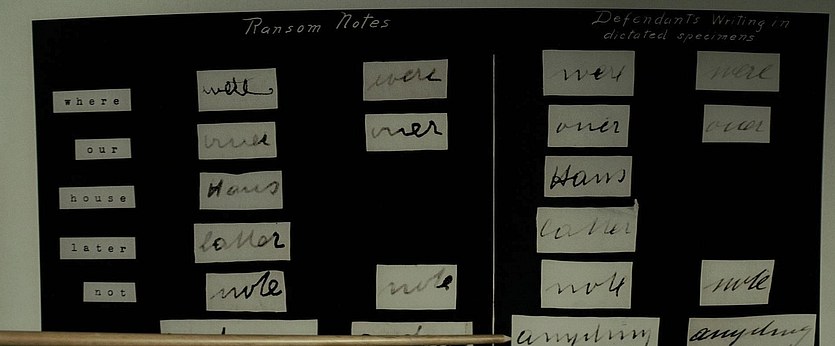 Ransom Notes
Defendants Writing in
dictated specimens
where were were were were
our ouer ouer ouer ouer
house Haus Haus
later latter latter
not note note note note
anything anything